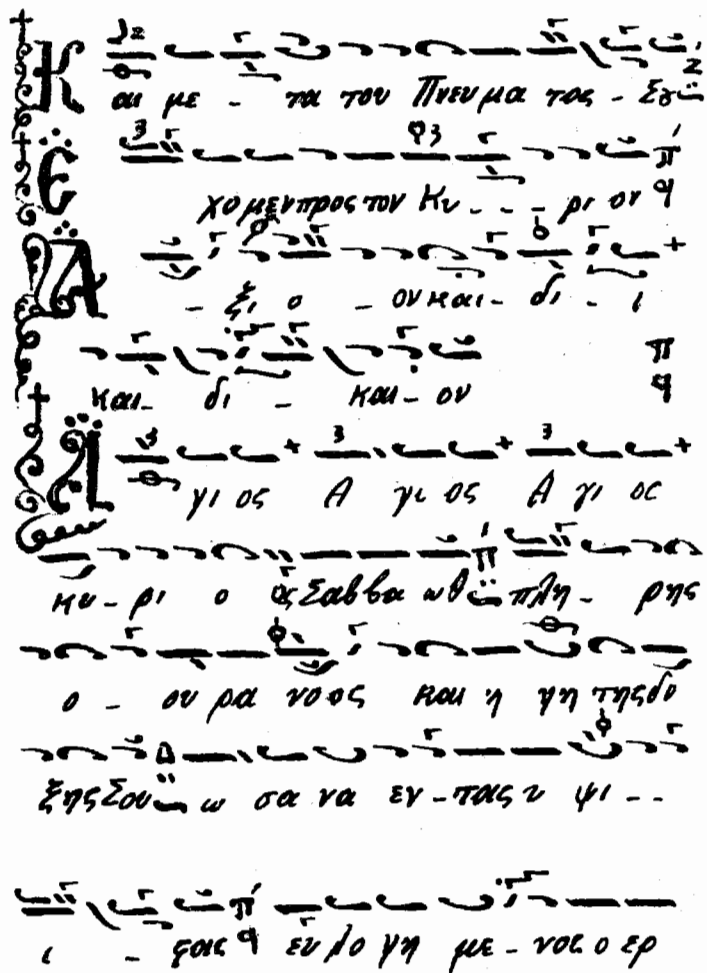 Και με - τα του Πνευμα τος - Σου
Ε χο μεν προς τον Κυ - - - ρι ον
Α - ξι ο - ον και - δι - ι
και - δι - και - ον
Α γι ος Α γι ος Α γι ος
κυ - ρι ο ος Σαββα ωθ πλη - ρης
ο - ου ρα νο ος και η γη της δο
ξης Σου ω σα να εν - τοις υ ψι - -
ι - ϛοις ευ λο γη με - νος ο ερ